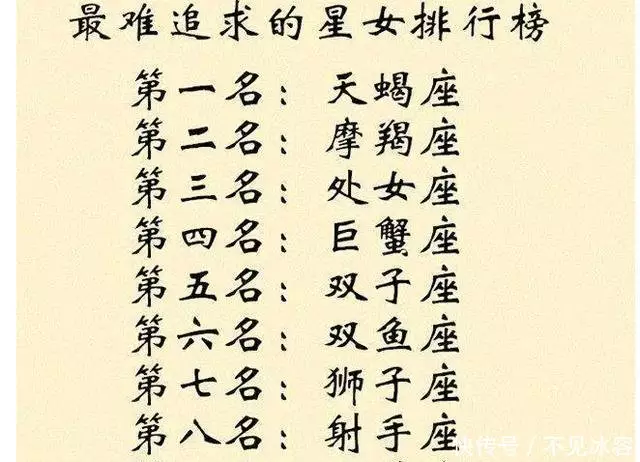 最难追求的星女排行榜
第一名：天蝎座
第二名：摩羯座
第三名：处女座
第四名：巨蟹座
第五名：双子座
第六名：双鱼座
第七名：狮子座
第八名：射手座
快传号／不见冰容